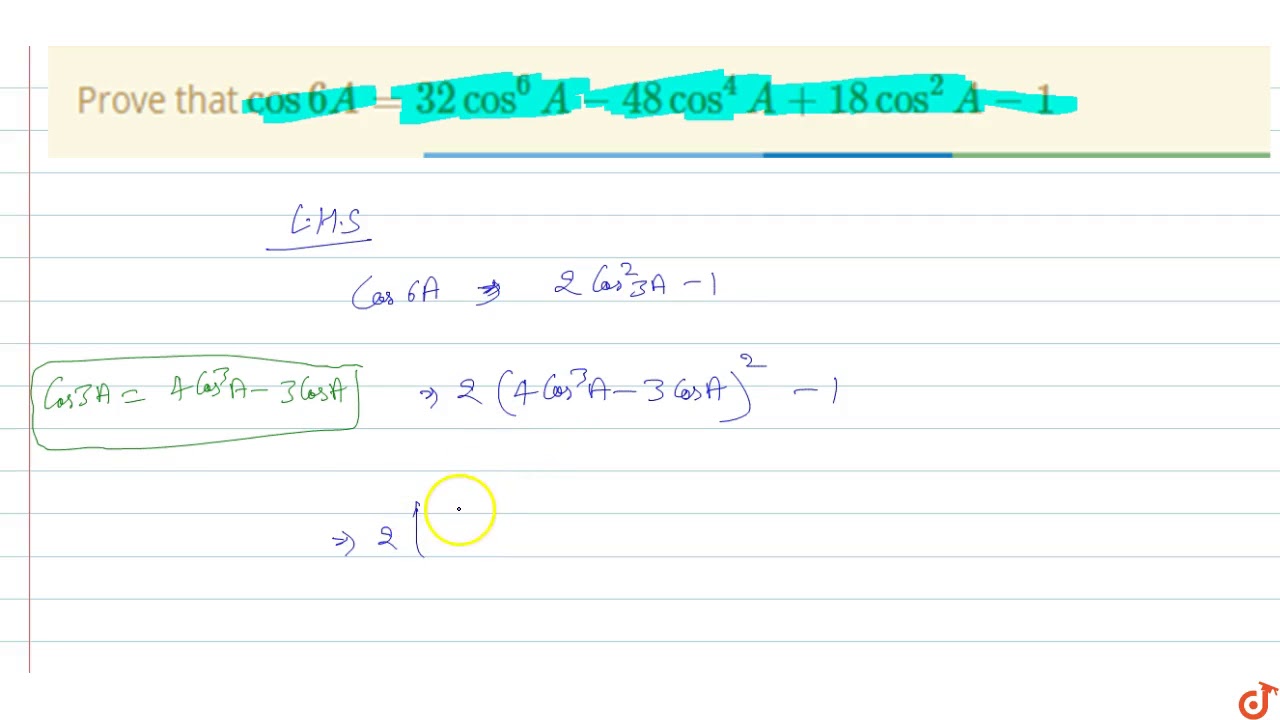 Prove that cos 6A = 32 cos⁶ A − 48 cos⁴ A + 18 cos² A − 1
L.H.S
Cos 6A ⇒ 2 Cos²3A − 1
Cos3A = 4 Cos³A − 3 CosA ⇒ 2 (4 Cos³A − 3 CosA)² − 1
⇒ 2 (